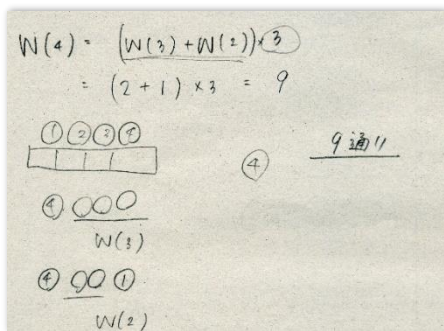 W(4) = (W(3) + W(2)) × 3
= (2 + 1) × 3 = 9
① ② ③ ④
④
9通り
④ ○ ○ ○
W(3)
④ ○ ○ ①
W(2)